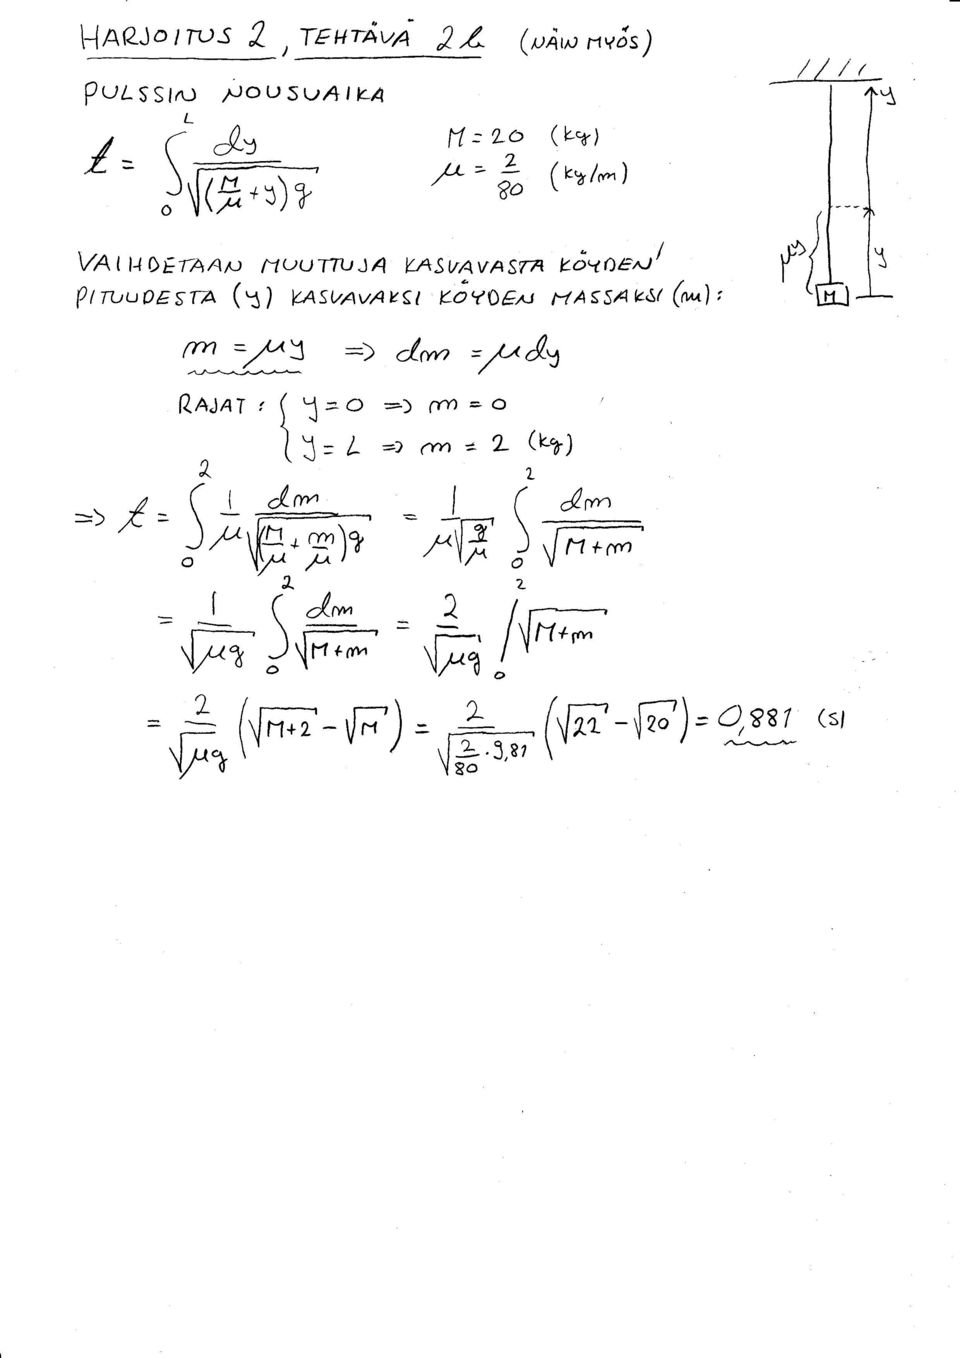 HARJOITUS 2, TEHTÄVÄ 2b (NÄIN MYÖS)
PULSSIN NOUSUAIKA
t = ∫₀ᴸ dy / √((M/μ + y) g)
M = 20 (kg)
μ = 2/80 (kg/m)
y
μy
y
M
VAIHDETAAN MUUTTUJA KASVAVASTA KÖYDEN
PITUUDESTA (y) KASVAVAKSI KÖYDEN MASSAKSI (m):
m = μy => dm = μdy
RAJAT: { y = 0 => m = 0
y = L => m = 2 (kg)
=> t = ∫₀² 1/μ dm / √((M/μ + m/μ) g) = 1 / (μ√(g/μ)) ∫₀² dm / √(M+m)
= 1/√(μg) ∫₀² dm / √(M+m) = 2/√(μg) /₀² √(M+m)
= 2/√(μg) (√(M+2) - √M) = 2 / √(2/80 · 9,81) (√22 - √20) = 0,881 (s)